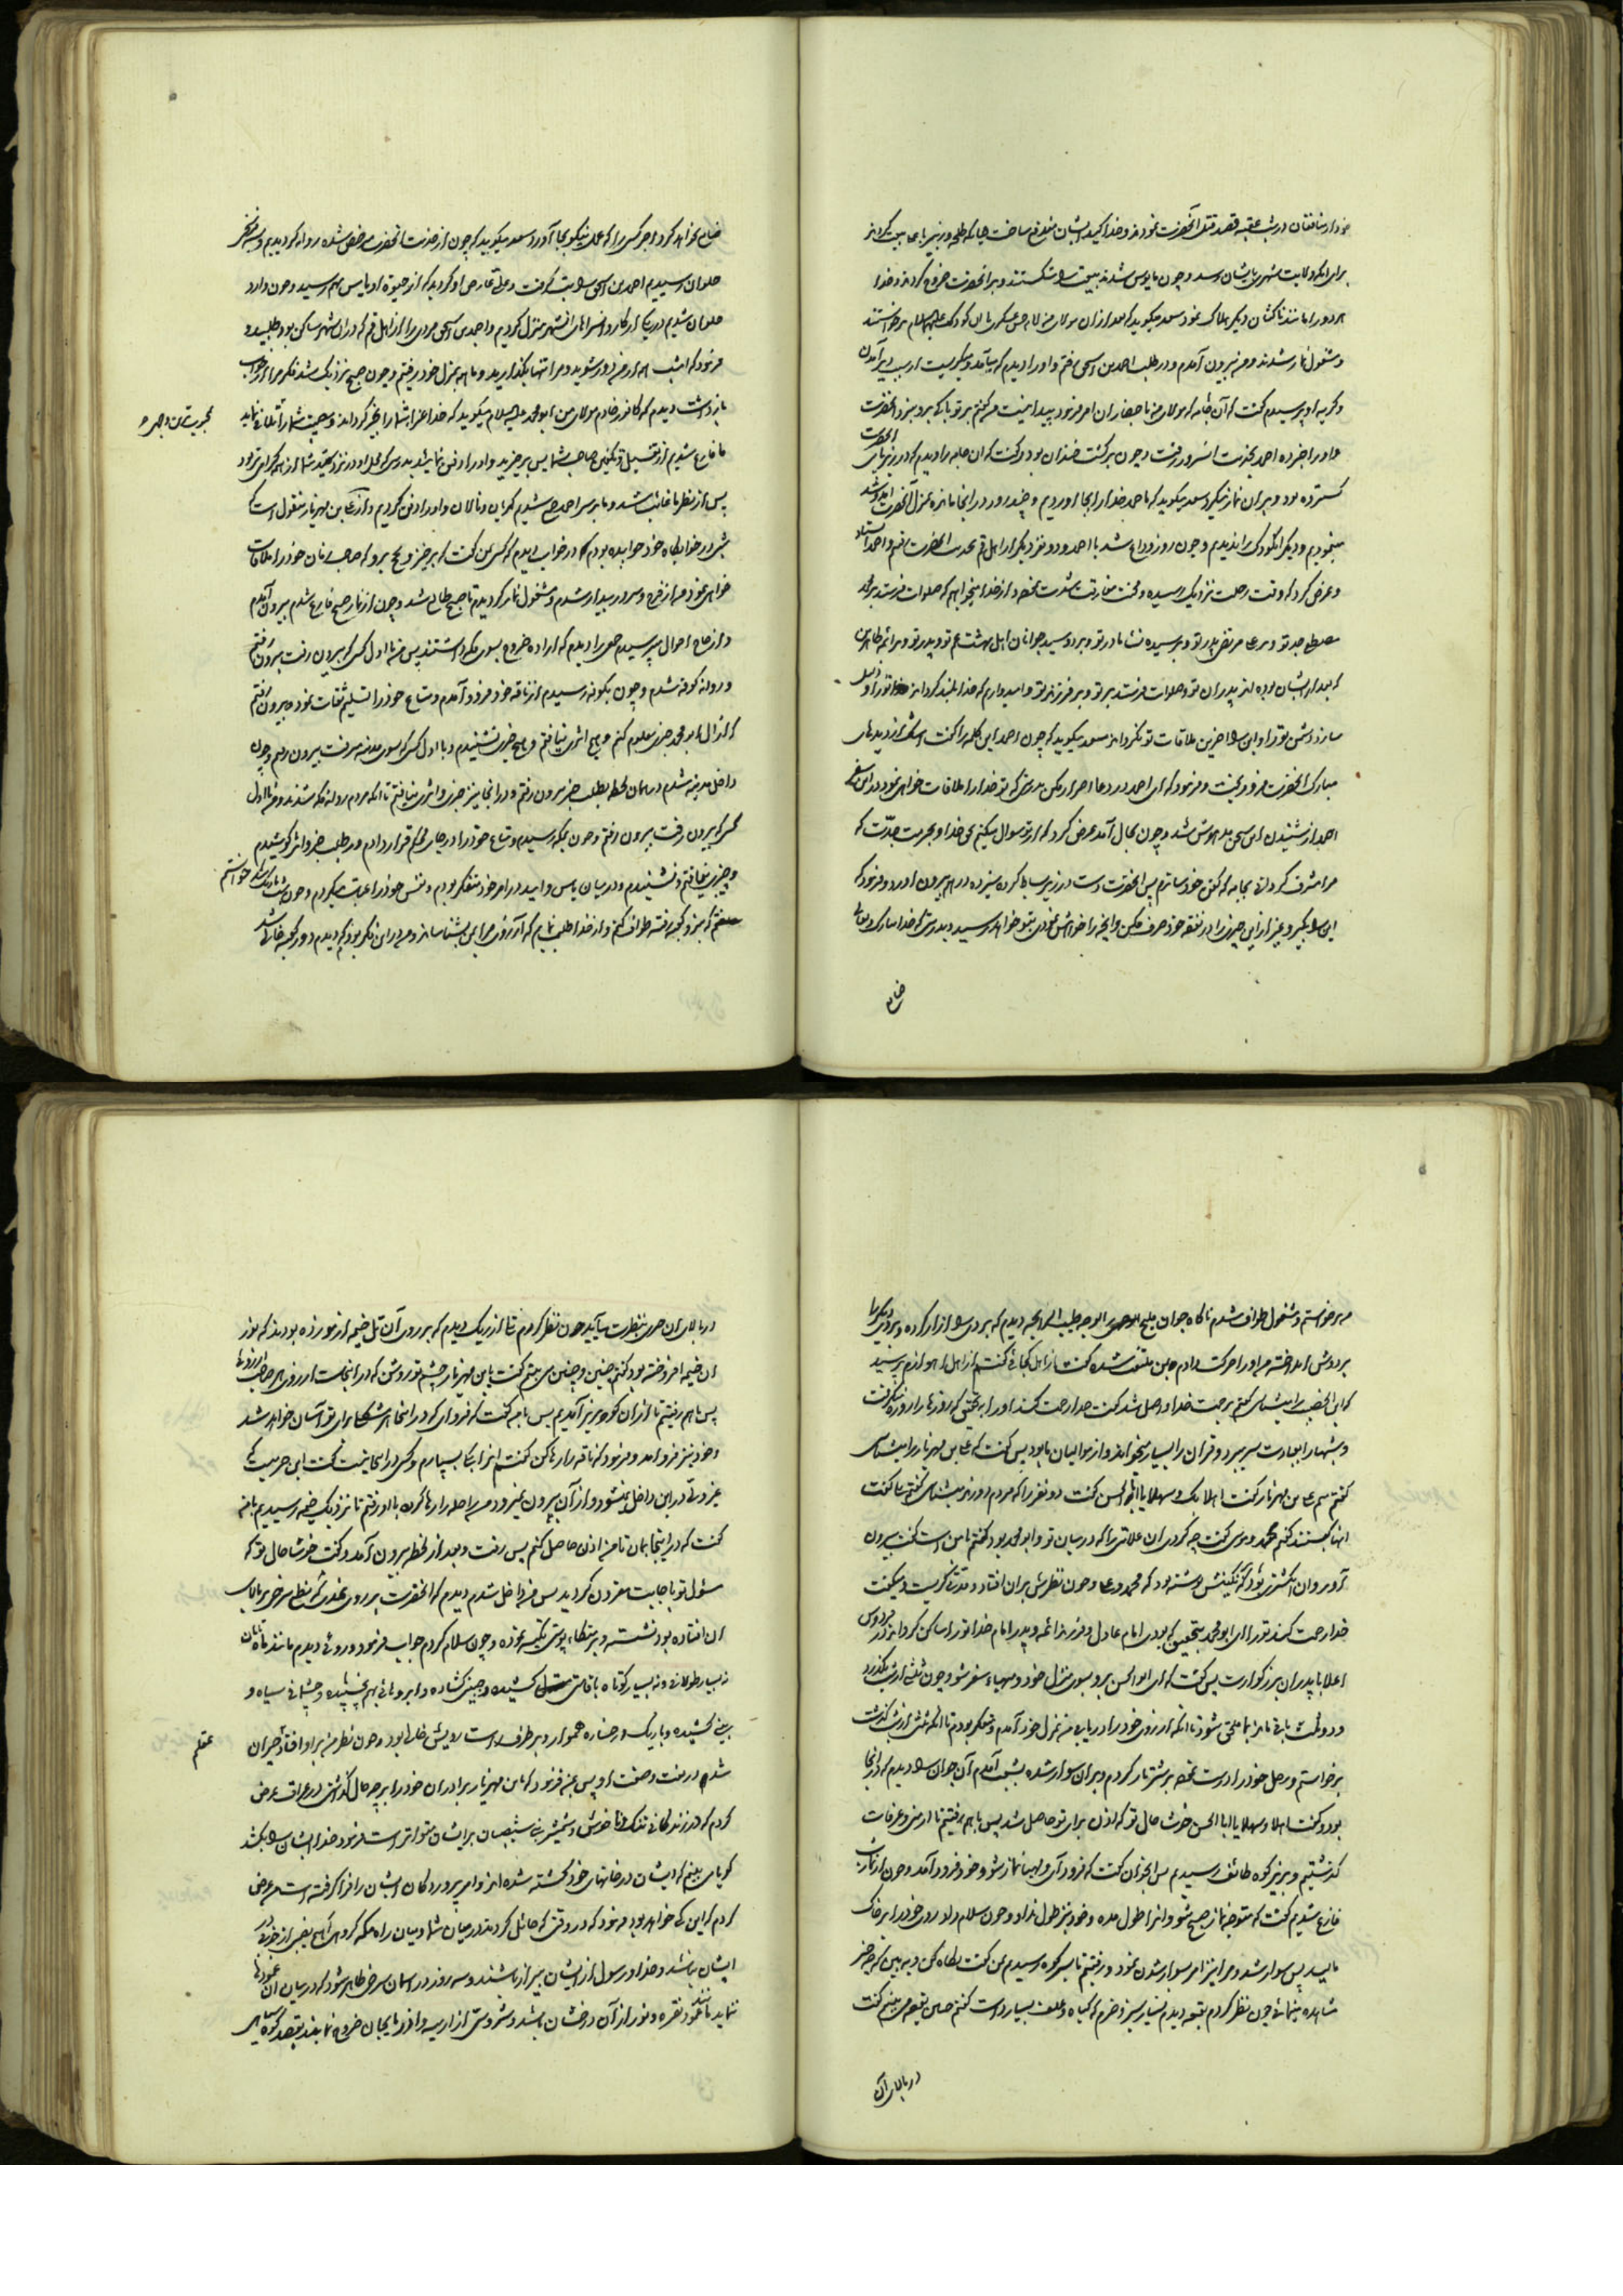 خود از منافقان در شب عقبه قصد قتل آنحضرت نمودند و خدا کید ایشان دفع ساخت چنانکه طلحه و زبیر با علی بیعت کردند
برای آنکه ولایت شهری بایشان رسد و چون مایوس شدند بیعت را شکستند و بر آنحضرت خروج کردند و خدا
هر دو را مانند ناکثان دیگر هلاک نمود سعد میگوید که بعد از آن مولای من امام حسن عسکری با آن کودک علیهما السلام برخاستند
و مشغول نماز شدند و من بیرون آمدم و در طلب احمد بن اسحق رفتم و او را دیدم که میآمد و میگریست از سبب دیر آمدن
و گریه او پرسیدم گفت که آن جامه که مولای من باحضار آن امر فرمود پیدا نیست من گفتم بر تو باکی نیست برو و بنزد آنحضرت
و او را خبر ده احمد بخدمت آنسرور رفت و چون برگشت خندان بود و گفت که آن جامه را دیدم که در زیر پای آنحضرت
گسترده بود و بر آن نماز میکرد سعد میگوید که ما حمد خدا را بجا آوردیم و چند روز در آنجا مانده بمنزل آنحضرت آمد و شد
مینمودیم و دیگر آن کودک را ندیدیم و چون روز وداع شد با احمد و دو نفر دیگر از اهل قم بخدمت آنحضرت رفتم و احمد ایستاد
و عرض کرد که وقت رحلت نزدیک رسیده و محنت مفارقت شدت نموده از خدا میخواهم که صلوات فرستد بر محمد
مصطفی جد تو و بر علی مرتضی پدر تو و بر سیده نسا مادر تو و بر دو سید جوانان اهل بهشت عم تو و پدر تو و بر ائمه طاهرین
که بعد از ایشان بوده اند پدران تو و صلوات فرستد بر تو و بر فرزند تو و امیدوارم که خدا بلند گرداند تو را و ذلیل
سازد دشمن تو را و این را آخرین ملاقات تو نگرداند سعد میگوید که چون احمد این کلمه را گفت اشک از دیده های
مبارک آنحضرت فرو ریخت و فرمود که ای احمد در دعا اصرار مکن بدرستی که تو خدا را ملاقات خواهی نمود در این سفر
احمد از شنیدن این سخن بیهوش شد و چون بحال آمد عرض کرد که از تو سوال میکنم بحق خدا و بحرمت جدت که
مرا مشرف گردانی بجامه که کفن خود سازم پس آنحضرت دست در زیر بساط کرده سیزده درهم بیرون آورد و فرمود که
این را بگیر و بغیر از این چیزی را در نفقه خود صرف مکن و آنچه را خواهش نمودی بتو خواهد رسید و بدرستی که خدا تبارک و تعالی
ضایع
ضایع نخواهد کرد اجر کسی را که عمل نیکو بجا آورد سعد میگوید که چون از خدمت آنحضرت مرخص شده روانه گردیدیم و بسه فرسخ
حلوان رسیدیم احمد بن اسحق را تب گرفت و علتی عارض او گردید که از حیوة او یأس بهم رسید و چون وارد
حلوان شدیم در یکی از کاروانسراهای آنشهر منزل کردیم و احمد بن اسحق مردی را از اهل قم که در آن شهر ساکن بود طلبید و
فرمود که امشب همه از من دور شوید و مرا تنها بگذارید و ما همه بمنزل خود رفتیم و چون صبح نزدیک شد فکر مرا از خواب
بازداشت دیدم که کافور خادم مولای من ابومحمد علیه السلام میگوید که خدا عزای شما را بخیر گرداند و مصیبت شما را تلافی نماید
ما فارغ شدیم از تغسیل و تکفین صاحب شما پس برخیزید و او را دفن نمایید بدرستی که محل او در نزد سید شما از همه گرامی تر بود
پس از نظر ما غائب شد و ما بر سر احمد جمع شدیم گریان و نالان و او را دفن کردیم و از علی بن مهزیار منقول است که
شبی در خوابگاه خود خوابیده بودم که در خواب دیدم که کسی بمن گفت که برخیز و بحج برو که صاحب زمان خود را ملاقات
خواهی نمود من از فرح و سرور بیدار شدم و مشغول نماز گردیدم تا صبح طالع شد و چون از نماز صبح فارغ شدم بیرون آمدم
و از حاج احوال پرسیدم جمعی را دیدم که اراده خروج بسوی مکه داشتند پس من با اول کسی که بیرون رفت بیرون رفتم
و روانه کوفه شدم و چون بکوفه رسیدم از ناقه خود فرود آمدم و متاع خود را تسلیم ثقات نموده بیرون رفتم
که از آل ابومحمد خبری معلوم کنم و هیچ اثری نیافتم و هیچ خبری نشنیدم و با اول کسی که بسوی مدینه میرفت بیرون رفتم و چون
داخل مدینه شدم در همان لحظه بطلب خبر بیرون رفتم و در آنجا نیز خبری و اثری نیافتم تا آنکه مردم روانه مکه شدند و من با اول
کسی که بیرون رفت بیرون رفتم و چون بمکه رسیدم و متاع خود را در جای محکم قرار دادم و در طلب خبر و اثر کوشیدم
و چیزی نیافتم و نشنیدم و در میان یأس و امید در امر خود متفکر بودم و نفس خود را عتاب میکردم و چون شب تاریک شد خواستم
که بنزد کعبه رفته طواف کنم و از خدا طلب نمایم که آرزوی مرا بمن بشناساند و من در این فکر بودم که دیدم دور کعبه خالی شد
من برخواستم و مشغول طواف شدم ناگاه جوان ملیح الوجه طیب الرایحه دیدم که بردی را ازار کرده و بردی دیگر را
بر دوش انداخته من او را حرکت دادم بمن ملتفت شده گفت از اهل کجائی گفتم از اهل اهوازم پرسید
که ابن الخضیب را میشناسی گفتم برحمت خدا واصل شد گفت خدا رحمت کند او را بتحقیق که روزها را روزه میگرفت
و شبها را بعبادت بسر میبرد و قرآن را بسیار میخواند و از موالیان ما بود پس گفت که علی بن مهزیار را میشناسی
گفتم منم علی بن مهزیار گفت اهلا بک و سهلا یا ابا الحسن گفت
گفتم محمد و موسی گفت چه کردی آن علامتی را که در میان تو و ابومحمد بود گفتم با من است گفت بیرون
آور و آن انگشتری بود که بر نگینش نوشته بود که محمد و علی و چون نظرش بر آن افتاد مدتی گریست و میگفت
خدا رحمت کند تو را ای ابومحمد بتحقیق که بودی امام عادل و فرزند ائمه و پدر امام خدا تو را ساکن گرداند در فردوس
اعلا با پدران بزرگوارت پس گفت که ای ابوالحسن برو بسوی منزل خود و مهیاء سفر شو و چون ثلثی از شب بگذرد
و دو ثلث باقی ماند بما ملحق شو تا آنکه آرزوی خود را دریابی من بمنزل خود آمدم و متفکر بودم تا آنکه ثلثی از شب گذشت
برخواستم و رحل خود را درست نموده بر شتر بار کردم و بر آن سوار شده بشتاب آمدم آن جوان را دیدم که در آنجا
بود و گفت اهلا و سهلا یا ابا الحسن خوشا حال تو که اذن برای تو حاصل شد پس با هم رفتیم تا از منی و عرفات
گذشتیم و بزیر کوه طائف رسیدیم پس آنجوان گفت که فرود آی و مهیاء نماز شو و خود فرود آمد و چون از نماز شب
فارغ شدیم گفت که متوجه نماز صبح شو و آنرا طول مده و خود نیز طول نداد و چون سلام داد روی خود را بر خاک
مالید پس سوار شد و مرا نیز امر بسوار شدن نمود و رفتیم تا بسر کوه رسیدیم بمن گفت نگاه کن و ببین که چه چیز
مشاهده مینمائی چون نظر کردم بقعه دیدم بسیار سبز و خرم که گیاه و علف بسیار داشت گفتم چنین بقعه می بینم گفت
در بالای آن
در بالای آن چیزی بنظرت میآید چون نظر کردم تلی از ریگ دیدم که بر روی آن تل خیمه از مو زده بودند که نور
آن خیمه افروخته بود گفتم چنین و چنین می بینم گفت یابن مهزیار چشم تو روشن که در آنجاست آرزوی هر صاحب آرزوها
پس با هم رفتیم تا از آن کوه بزیر آمدیم پس بمن گفت که فرود آی که در اینجا هر مشکلی برای تو آسان خواهد شد
و خود نیز فرود آمد و فرمود که ناقه را رها کن گفتم آنرا بکه بسپارم و کسی در اینجا نیست گفت این حرمیست که
غیر ولی در این داخل نمیشود و از آن بیرون نمیرود من راحله را رها کرده با او رفتم تا نزدیک خیمه رسیدیم بمن
گفت که در اینجا بمان تا من اذن حاصل کنم پس رفت و بعد از لحظه بیرون آمد و گفت خوشا حال تو که
مسئول تو باجابت مقرون گردید پس من داخل شدم دیدم که آنحضرت بر روی نمدی که نطع سرخی بر بالای
آن افتاده بود نشسته و بر متکاء پوستی تکیه نموده و چون سلام کردم جواب فرمود و روئی دیدم مانند ماه تابان
نه بسیار طولانی و نه بسیار کوتاه با قامتی کشیده و جبینی گشاده و ابروهائی بهم پیچیده و چشمانی سیاه و
بینی کشیده و باریک و رخساره هموار و بر طرف راست رویش خالی بود و چون نظر من بر او افتاد عقلم حیران
شد در نعت و صفت او پس بمن فرمود که یابن مهزیار برادران خود را بر چه حال گذاشتی در عراق عرض
کردم که در زندگانی تنگ ناخوش و شمشیر بنی شیصبان بر ایشان متواتر است فرمود خدا ایشان را بکشد
گویا می بینم که ایشان در خانهای خود کشته شده اند و امر پروردگار ایشان را فرا گرفته است من عرض
کردم که این کی خواهد بود فرمود که در وقتی که حائل گردند در میان شما و میان راه مکه گروهی که هیچ نصیبی از خوبی در
ایشان نباشد و خدا و رسول از ایشان بیزار باشند و سه روز در آسمان سرخی ظاهر شود که در میان آن عمودها
نماید مانند عمود نقره و نور از آن درخشان باشد و شروسی از ارمنیه و آذربایجان خروج نماید بقصد کوه سیاهی